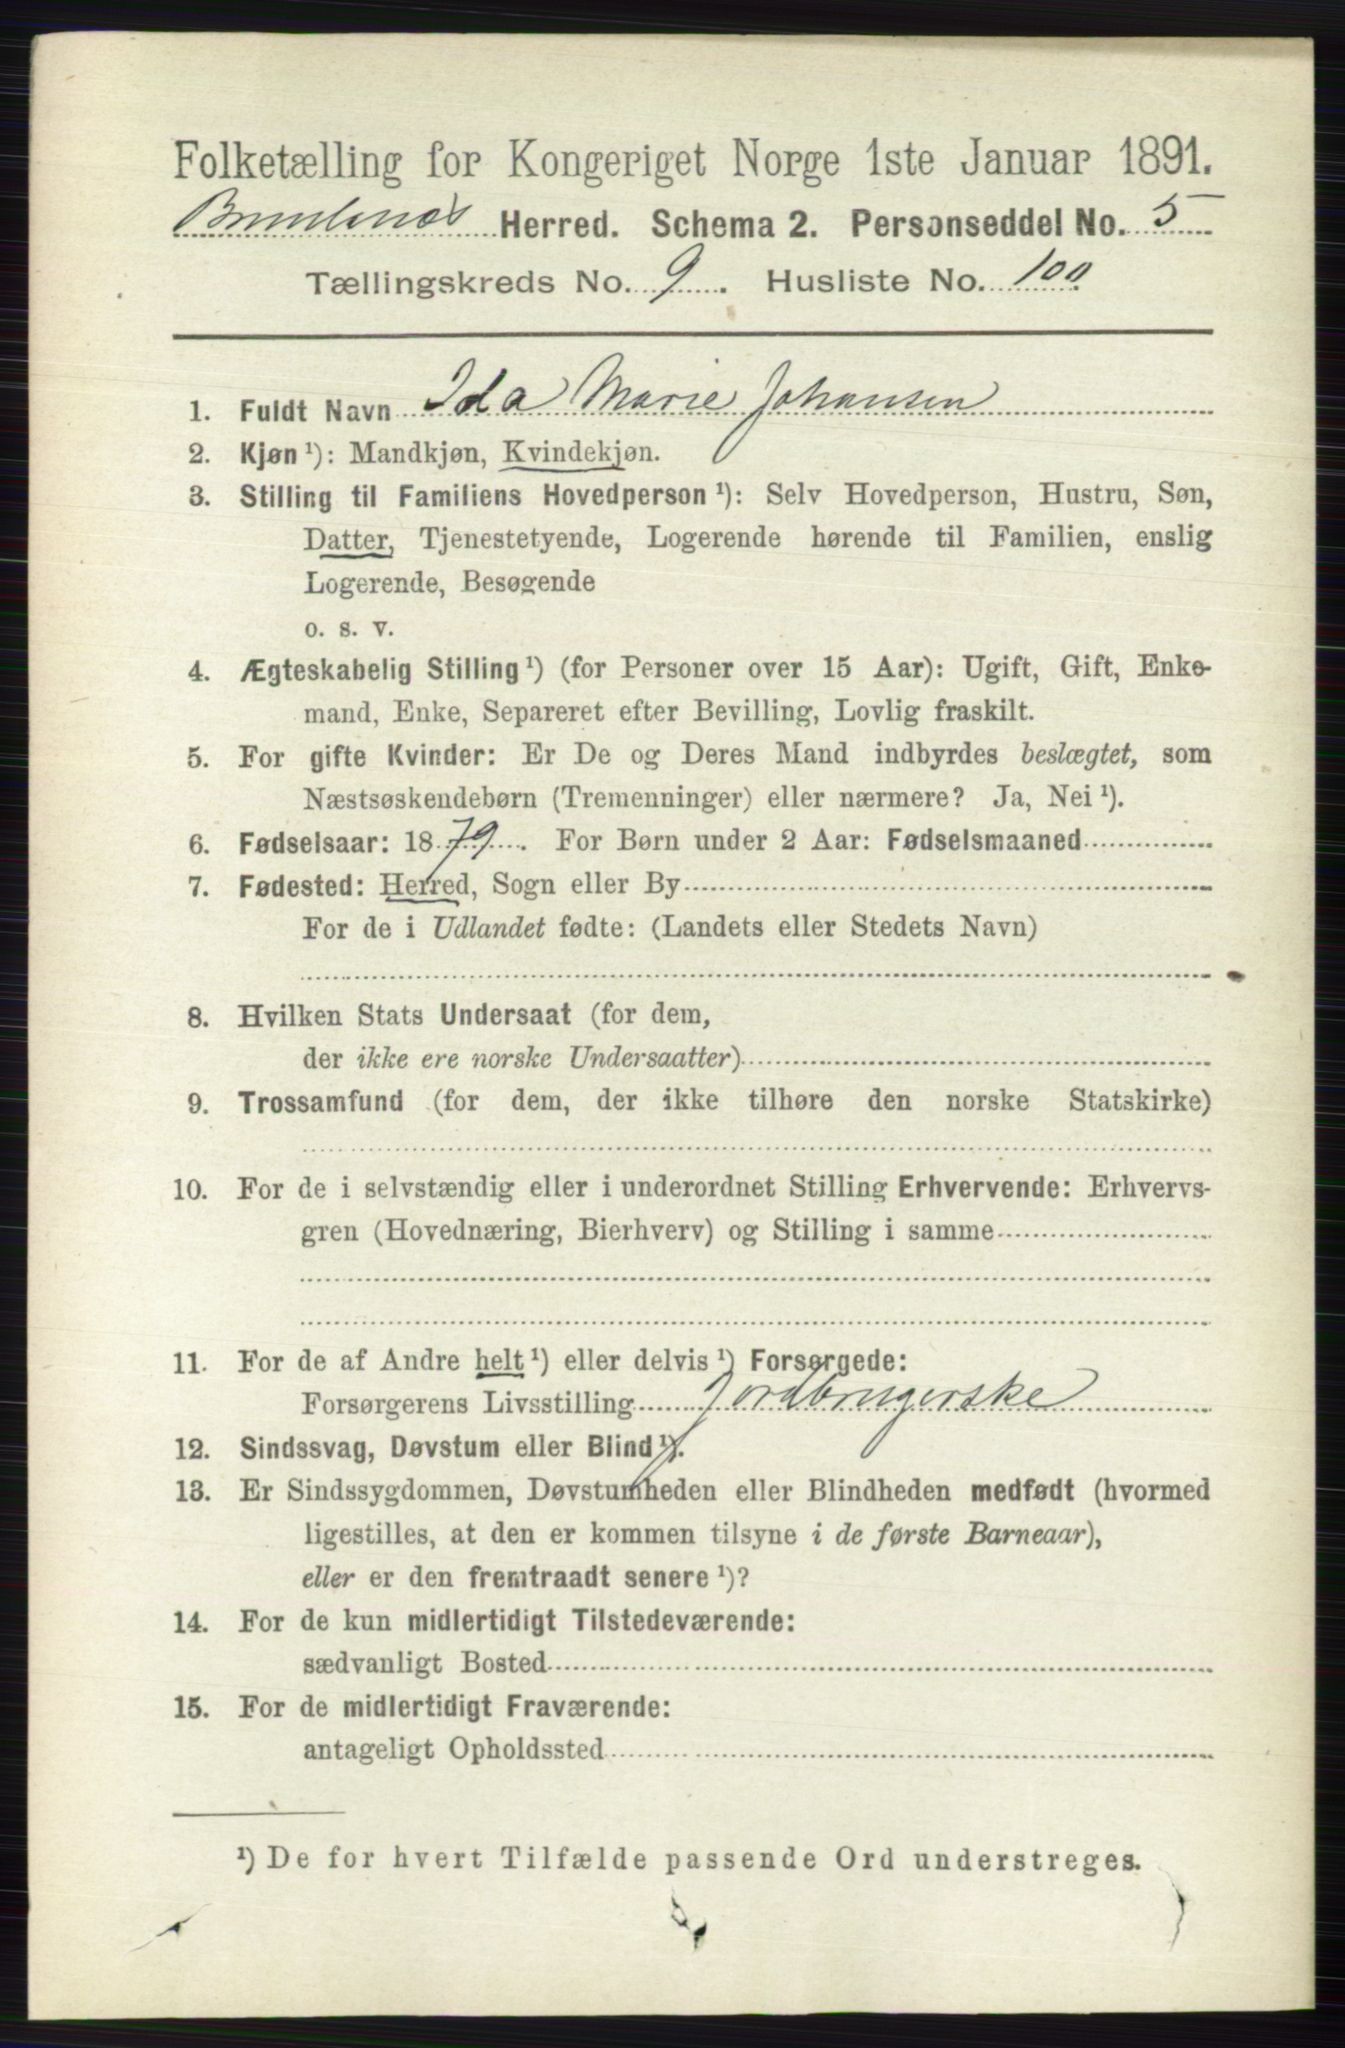 Folketælling for Kongeriget Norge 1ste Januar 1891.
Brunlanæs Herred. Schema 2. Personseddel No. 5
Tællingskreds No. 9. Husliste No. 100
1. Fuldt Navn Ida Marie Johansen
2. Kjøn ¹): Mandkjøn, Kvindekjøn.
3. Stilling til Familiens Hovedperson ¹): Selv Hovedperson, Hustru, Søn,
Datter, Tjenestetyende, Logerende hørende til Familien, enslig
Logerende, Besøgende
o. s. v.
4. Ægteskabelig Stilling ¹) (for Personer over 15 Aar): Ugift, Gift, Enke-
mand, Enke, Separeret efter Bevilling, Lovlig fraskilt.
5. For gifte Kvinder: Er De og Deres Mand indbyrdes beslægtet, som
Næstsøskendebørn (Tremenninger) eller nærmere? Ja, Nei ¹).
6. Fødselsaar: 1879. For Børn under 2 Aar: Fødselsmaaned
7. Fødested: Herred, Sogn eller By
For de i Udlandet fødte: (Landets eller Stedets Navn)
8. Hvilken Stats Undersaat (for dem,
der ikke ere norske Undersaatter)
9. Trossamfund (for dem, der ikke tilhøre den norske Statskirke)
10. For de i selvstændig eller i underordnet Stilling Erhvervende: Erhvervs-
gren (Hovednæring, Bierhverv) og Stilling i samme
11. For de af Andre helt ¹) eller delvis ¹) Forsørgede:
Forsørgerens Livsstilling Jordbrugerske
12. Sindssvag, Døvstum eller Blind ¹).
13. Er Sindssygdommen, Døvstumheden eller Blindheden medfødt (hvormed
ligestilles, at den er kommen tilsyne i de første Barneaar),
eller er den fremtraadt senere ¹)?
14. For de kun midlertidigt Tilstedeværende:
sædvanligt Bosted
15. For de midlertidigt Fraværende:
antageligt Opholdssted
¹) De for hvert Tilfælde passende Ord understreges.